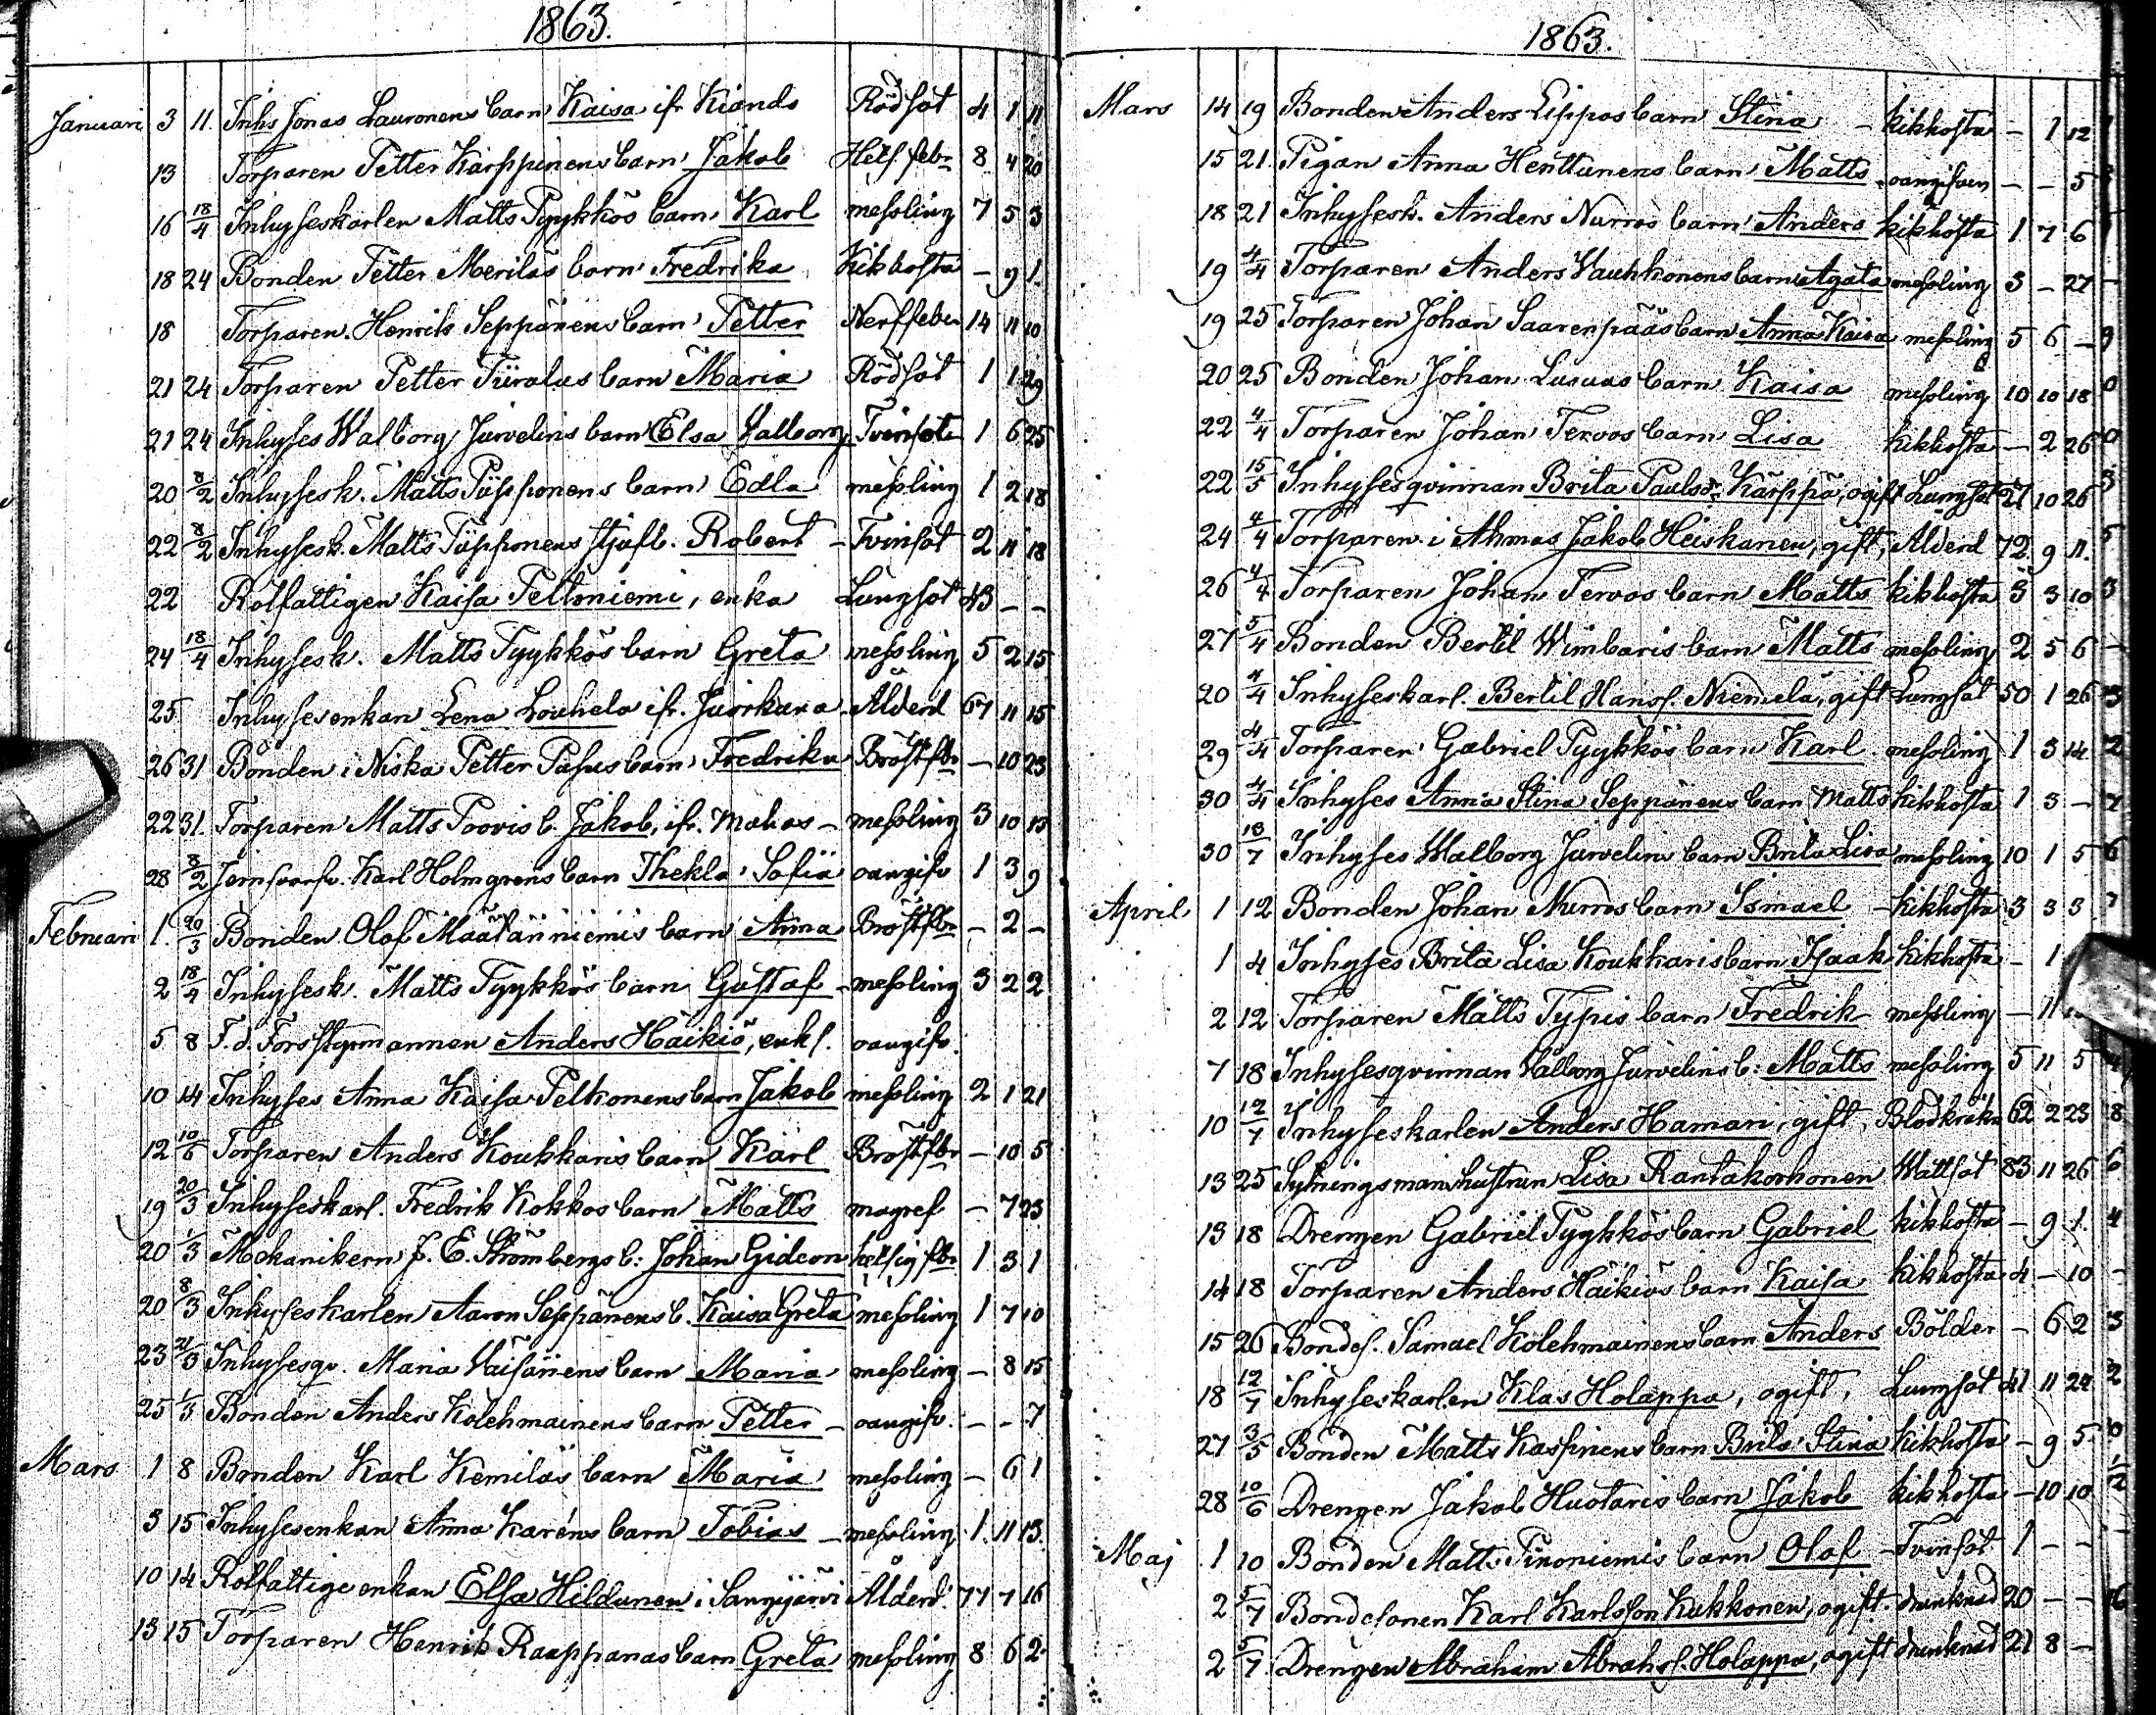 1863.
Januari 3 11. Inhs Jonas Lauronens barn Kaisa ifr Kiando Rödsot 4 1 11
13 Torparen Petter Karppinens barn Jakob Hets. febr 8 4 20
16 18/4 Inhyseskarlen Matts Pyykkös barn Karl messling 7 5 3
18 24 Bonden Petter Meriläs barn Fredrika Kikhosta - 9 1.
18 Torparen Henrik Seppänens barn Petter Nerffeber 14 11 10
21 24 Torparen Petter barn Maria Rödsot 1 1 29
21 24 Inhyses Walborg Jurvelins barn Elsa Valborg Tvinsot 1 6 25
20 8/2 Inhysesk. Matts barn Edla messling 1 2 18
22 8/2 Inhysesk. Matts stjufb. Robert - Tvinsot 2 11 18
22 Rotfattigen Kaisa Peltoniemi, enka Lungsot 43 - -
24 18/4 Inhysesk. Matts Pyykkös barn Greta messling 5 2 15
25 Inhysesenkan Lena Louhela ifr. Ålderd 67 11 15
26 31 Bonden i Niska Petter barn Fredrika Bröstfbr - 10 23
22 31. Torparen Matts b. Jakob, ifr. Muhos - messling 3 10 13
28 8/2 Karl Holmgrens barn Thekla Sofia oangifv 1 3 9
Februari 1. 20/3 Bonden Olof Määtänniemis barn Anna Bröstfbr - 2 -
2 18/4 Inhysesk. Matts Pyykkös barn Gustaf - messling 3 2 2
5 8 F.d. Forstgmannen Anders Häikiö, enkl. oangifv.
10 14 Inhyses Anna Kaisa Peltonens barn Jakob messling 2 1 21
12 10/6 Torparen Anders Koukkaris barn Karl Bröstfbr - 10 5
19 20/3 Inhyseskarl. Fredrik Kokkos barn Matts magref - 7 23
20 1/3 Mekanikern J. E. Strömbergs b: Johan Gideon hetsig fbr 1 3 1
20 8/3 Inhyseskarlen Aaron Seppänens b. Kaisa Greta messling 1 7 10
23 21/3 Inhysesqv. Maria Väisänens barn Maria messling - 8 15
25 1/3 Bonden Anders Kolehmainens barn Petter - oangifv. - - 7
Mars 1 8 Bonden Karl Kemiläs barn Maria messling - 6 1
3 15 Inhysesenkan Anna Karéns barn Tobias - messling 1. 11 13.
10 14 Rotfattige enkan Elsa Hildunen i Sangijärvi Ålderd. 77 7 16
13 15 Torparen Henrik Raappanas barn Greta messling 8 6 2
1863.
Mars 14 19 Bonden Anders Lippos barn Stina - kikhosta - 1 12
15 21. Pigan Anna Henttunens barn Matts - oangifven - - 5
18 21 Inhysesk. Anders Nurros barn Anders kikhosta 1 7 6
19 4/4 Torparen Anders Vauhkonens barn Agata messling 3 - 27
19 25 Torparen Johan Saarenpääs barn Anna Kaisa messling 5 6 -
20 25 Bonden Johan Lusuas barn Kaisa messling 10 10 18
22 4/4 Torparen Johan Tervos barn Lisa kikhosta - 2 26
22 15/5 Inhysesqvinnan Brita Paulsd. Karppa, ogift Lungsot 27 10 26
24 4/4 Torparen i Ahmas Jakob Heiskanen, gift, Ålderd 72 9 11.
26 4/4 Torparen Johan Tervos barn Matts kikhosta 3 3 10
27 5/4 Bonden Bertil Wimbaris barn Matts messling 2 5 6
20 4/4 Inhyseskarl. Bertil Hanss. Niemelä, gift Lungsot 50 1 26
29 4/4 Torparen Gabriel Pyykkös barn Karl. messling 1 3 14
30 4/4 Inhyses Anna Stina Seppänens barn Matts kikhosta 1 3 -
30 13/7 Inhyses Walborg Jurvelins barn Brita Lisa messling 10 1 5
April 1 12 Bonden Johan Nurros barn Ismael - kikhosta 3 3 3
1 4 Inhyses Brita Lisa Koukkaris barn Isaak kikhosta - 1
2 12 Torparen Matts Typis barn Fredrik messling - 11
7 18 Inhysesqvinnan Valborg Jurvelins b: Matts messling 5 11 5
10 12/7 Inhyseskarlen Anders Hamari, gift, 62 2 23
13 25 Sytningsmanshustrun Lisa Rantakorhonen Wattsot 83 11 26
13 18 Drengen Gabriel Pyykkös barn Gabriel kikhosta - 9 1.
14 18 Torparen Anders Häikiös barn Kaisa kikhosta 4 - 10
15 26 Bondes. Samuel Kolehmainens barn Anders Bölder - 6 2
18 12/7 Inhyseskarlen Klas Holappa, ogift, Lungsot 41 11 24
27 3/5 Bonden Matts Kaspinens barn Brita Stina kikhosta - 9 5
28 10/6 Drengen Jakob Huotaris barn Jakob kikhosta - 10 10
Maj 1 10 Bonden Matts Pinoniemis barn Olof - Tvinsot 1 - -
2 5/7 Bondesonen Karl Karlsson Kukkonen, ogift. drunknad 20 - -
2 5/7 Drengen Abraham Abrahs. Holappa, ogift drunknad 21 8 -